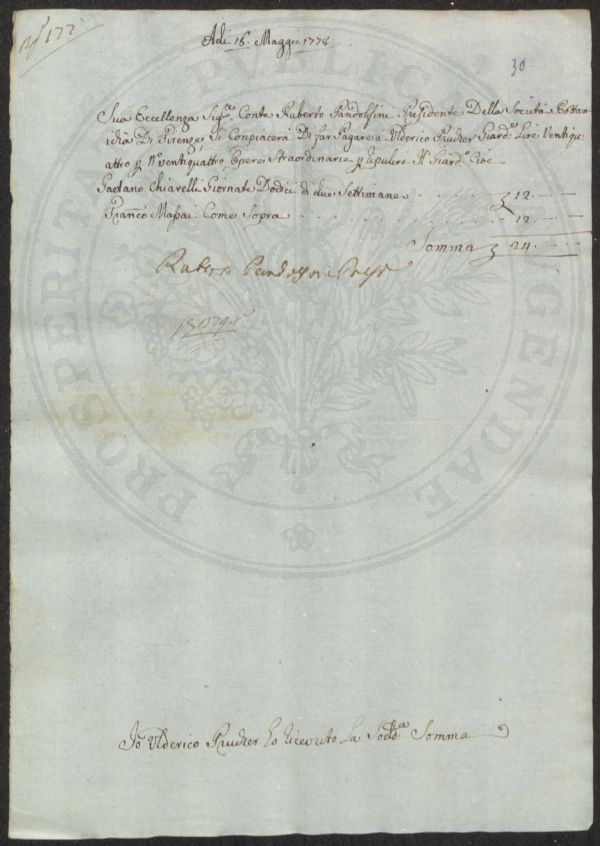 177
Adi 16: Maggio 1778
30
Sua Eccellenza Sig.re Conte Ruberto Pandolfini Presidente Della Società Bottan-
icha Di Firenze Si Conpiacerà Di far Pagare a Ulderico Prucker Giard.re Lire Ventiqu-
attro p N° ventiquattro Opere Straordinarie p ripulire Il Giard.o Cioè
Gaetano Chiarelli Giornate Dodici di due Settimane 12
Franc.o Massai Come Sopra 12
Somma 24
Ruberto Pandolfini
Io Ulderico Prucker ho ricevuto La Sodd.a Somma
PROSPERITATI PUBLICAE AUGENDAE